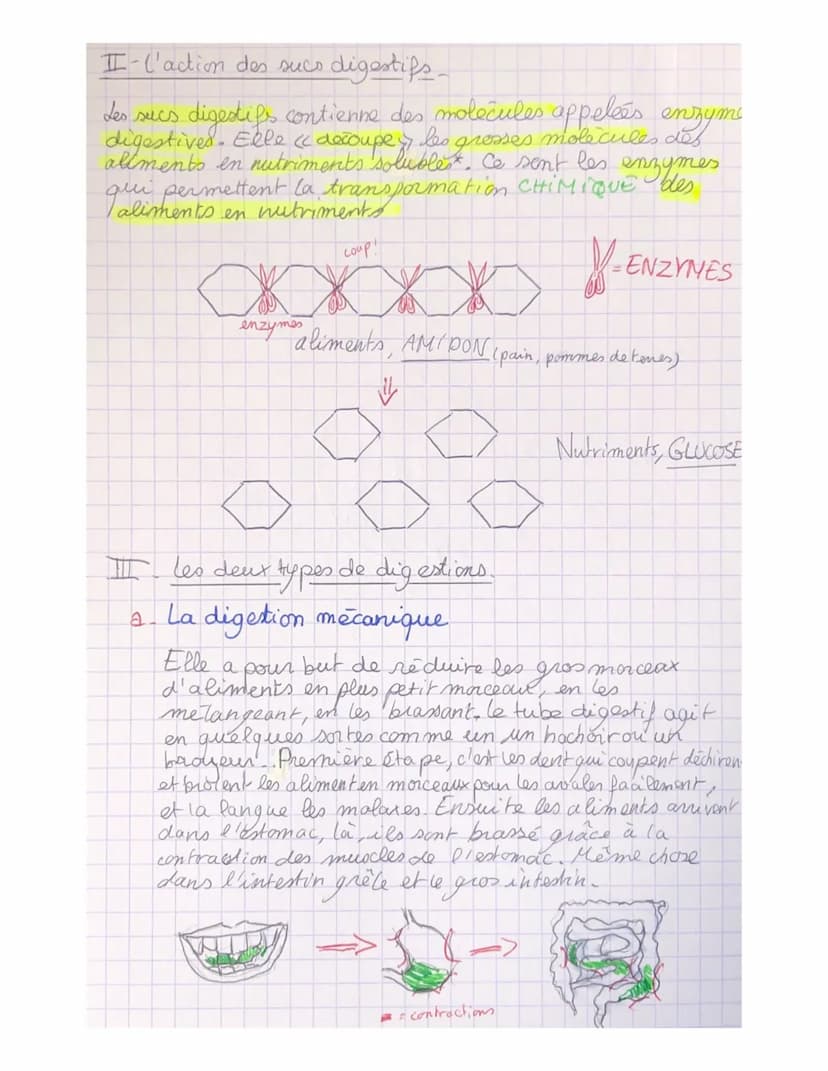 II - L'action des sucs digestifs.
Les sucs digestifs contienne des molécules appelées enzyme
digestives. Elle « découpe » les grosses molécules des
aliments en nutriments solubles*. Ce sont les enzymes
qui permettent la transformation CHIMIQUE des
aliments en nutriments
coup!
= ENZYMES
enzymes
aliments, AMIDON (pain, pommes de terres)
Nutriments, GLUCOSE
III - Les deux types de digestions.
a - La digestion mécanique
Elle a pour but de réduire les gros morceaux
d'aliments en plus petit morceaux, en les
mélangeant, en les brassant. Le tube digestif agit
en quelques sortes comme un un hochoir ou un
broyeur. Première étape, c'est les dent qui coupent déchiren
et broient les aliment en morceaux pour les avaler facilement,
et la langue les malaxes. Ensuite les aliments arrivent
dans l'estomac, là, ils sont brassé grâce à la
contraction des muscles de l'estomac. Même chose
dans l'intestin grêle et le gros intestin.
= contractions